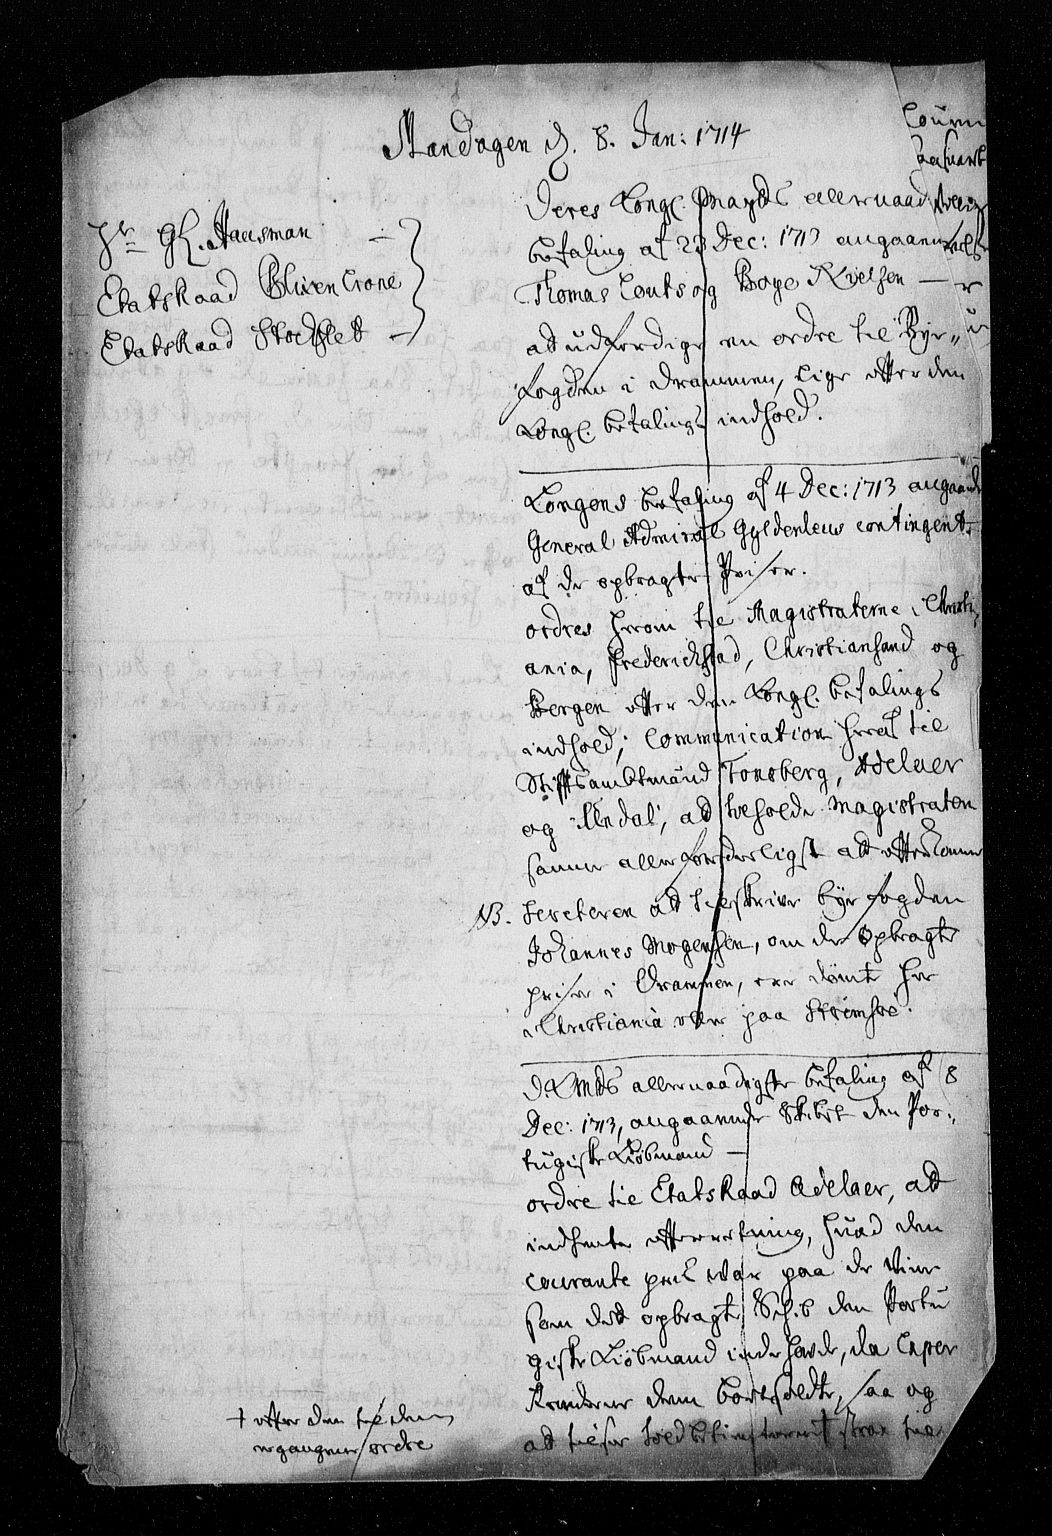 Mandagen d. 8. Jan: 1714
Hr Gl. Hausman
Etatskaad Blixencrone
Etatskaad Stochflet
Deres Kongl. Mayts allernaad
befaling af 23 Dec: 1713 angaaen
Thomas Couts og Boye Rietzen
at udferdige en ordre til Byr„
fogden i Drammen, lige efter den
Kongl. befalings indhold.
Kongens befaling af 4 Dec: 1713 angaaende
General Admiral Gyldenlews contingent
af de opbragte Priser.
ordres herom til Magistraterne i Christi
ania, Frederichstad, Christiansand og
Bergen efter den Kongl. befalings
indhold; communication heraf til
Stifftsambtmand Tonsberg, Adelaer
og Undal, at tilholde Magistraten
samme allerforderligst at efterkomme
NB. Secreteren at tilskrive byefogden
Johannes Mogensen, om de opbragte
priser i Drammen, ere dømt her
i Christiania eller paa Strømsøe.
D K Mts allernaadigste befaling af 8
Dec: 1713, angaaende Skibet den Por:
tugiske Kiøbmand
ordre til Etatskaad Adelaer, at
indhente efterretning, huad den
courante priis war paa de Viine
som det opbragte Skib den Portu
giske Kiøbmand inde havde, da Caper
Reederne dem bortsoldte, saa og
at
strax til
+ efter den til dem
ergangene ordre